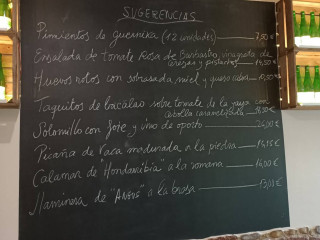 SUGERENCIAS
Pimientos de Guernika (12 unidades) 7,50 €
Ensalada de tomate Rosa de Barbastro, vinagreta de
cerezas y pistachos 14,50 €
Huevos rotos con sobrasada, miel y queso
Taquitos de bacalao sobre tomate de la yaya con
cebolla caramelizada
Solomillo con foie y vino de oporto 26,00 €
Picaña de Vaca madurada a la piedra
Calamar de "Hondarribia" a la romana 16,00 €
de "ANGUS" a la brasa 13,00 €